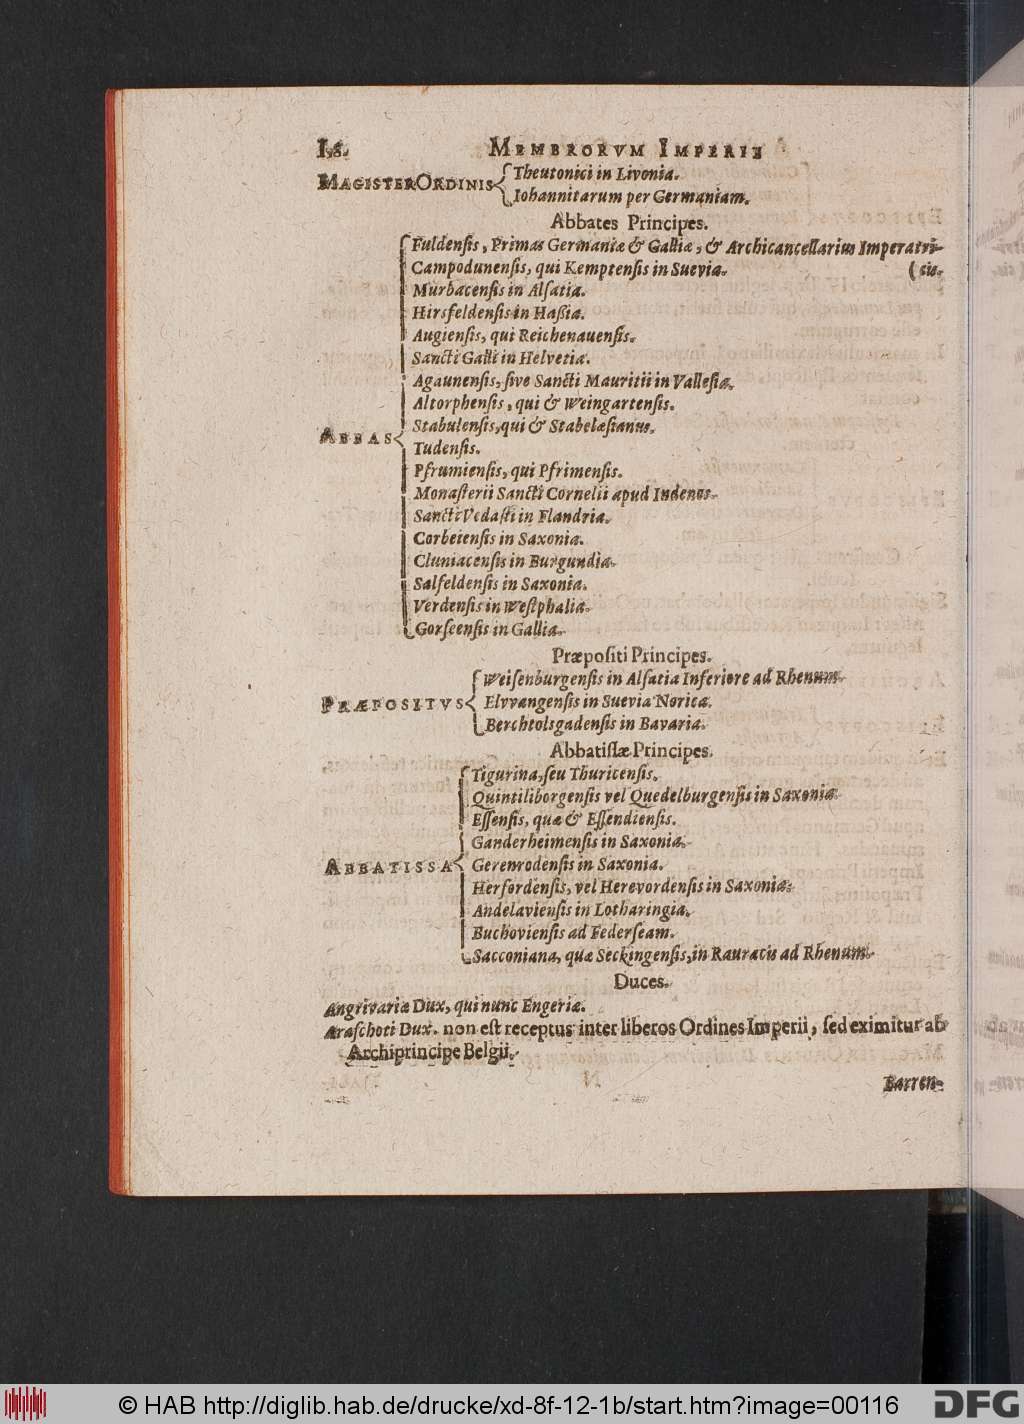 MEMBRORVM IMPERII
MAGISTER ORDINIS
Theutonici in Livonia.
Iohannitarum per Germaniam.
Abbates Principes.
ABBAS
Fuldensis, Primas Germaniæ & Galliæ, & Archicancellarius Imperatri-
Campodunensis, qui Kemptensis in Suevia. (cis.
Murbacensis in Alsatia.
Hirsfeldensis in Haßia.
Augiensis, qui Reichenauensis.
Sancti Galli in Helvetia.
Agaunensis, sive Sancti Mauritii in Vallesia.
Altorphensis, qui & Weingartensis.
Stabulensis, qui & Stabelæsianus.
Tudensis.
Pfrumiensis, qui Pfrimensis.
Monasterii Sancti Cornelii apud Indenos.
Sancti Vedasti in Flandria.
Corbeiensis in Saxonia.
Cluniacensis in Burgundia.
Salfeldensis in Saxonia.
Verdensis in Westphalia.
Gorseensis in Gallia.
Præpositi Principes.
PRÆPOSITVS
Weisenburgensis in Alsatia Inferiore ad Rhenum.
Elvvangensis in Suevia Norica.
Berchtolsgadensis in Bavaria.
Abbatissæ Principes.
ABBATISSA
Tigurina, seu Thuricensis.
Quintiliborgensis vel Quedelburgensis in Saxonia.
Essensis, quæ & Essendiensis.
Ganderheimensis in Saxonia.
Gerenrodensis in Saxonia.
Herfordensis, vel Herevordensis in Saxonia.
Andelaviensis in Lotharingia.
Buchoviensis ad Federseam.
Sacconiana, quæ Seckingensis, in Rauracis ad Rhenum.
Duces.
Angrivariæ Dux, qui nunc Engeriæ.
Araschoti Dux. non est receptus inter liberos Ordines Imperii, sed eximitur ab
Archiprincipe Belgii.
Barren-
© HAB http://diglib.hab.de/drucke/xd-8f-12-1b/start.htm?image=00116
DFG